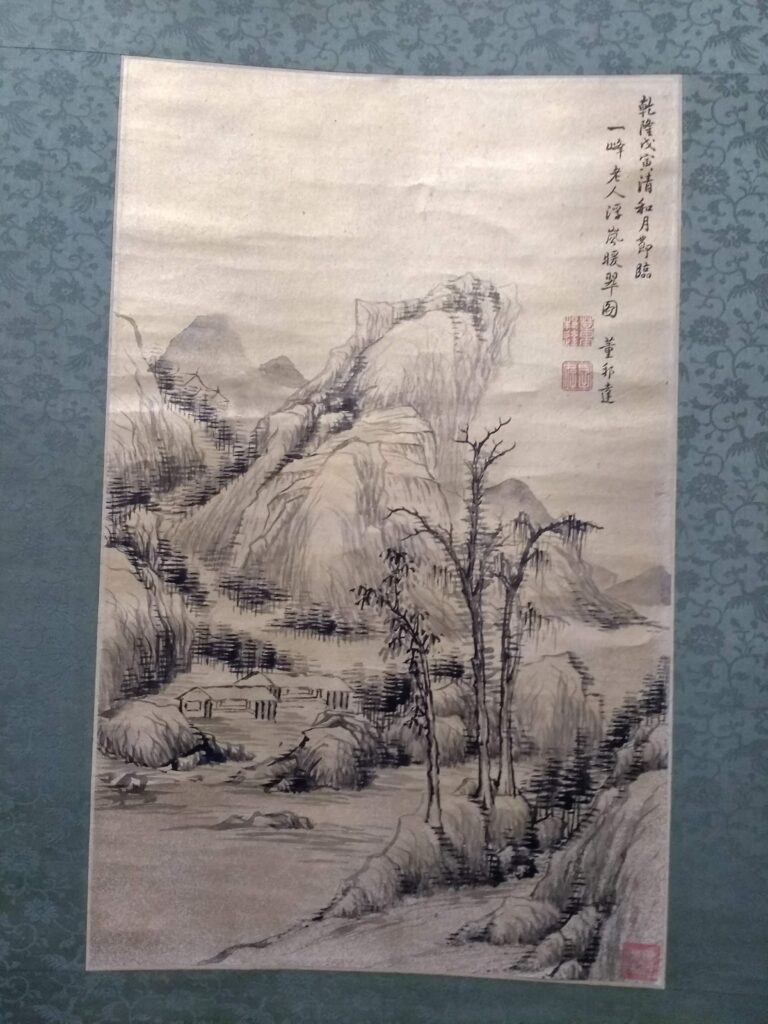 乾隆戊寅清和月節臨
一峰老人浮嵐暖翠図
董邦達